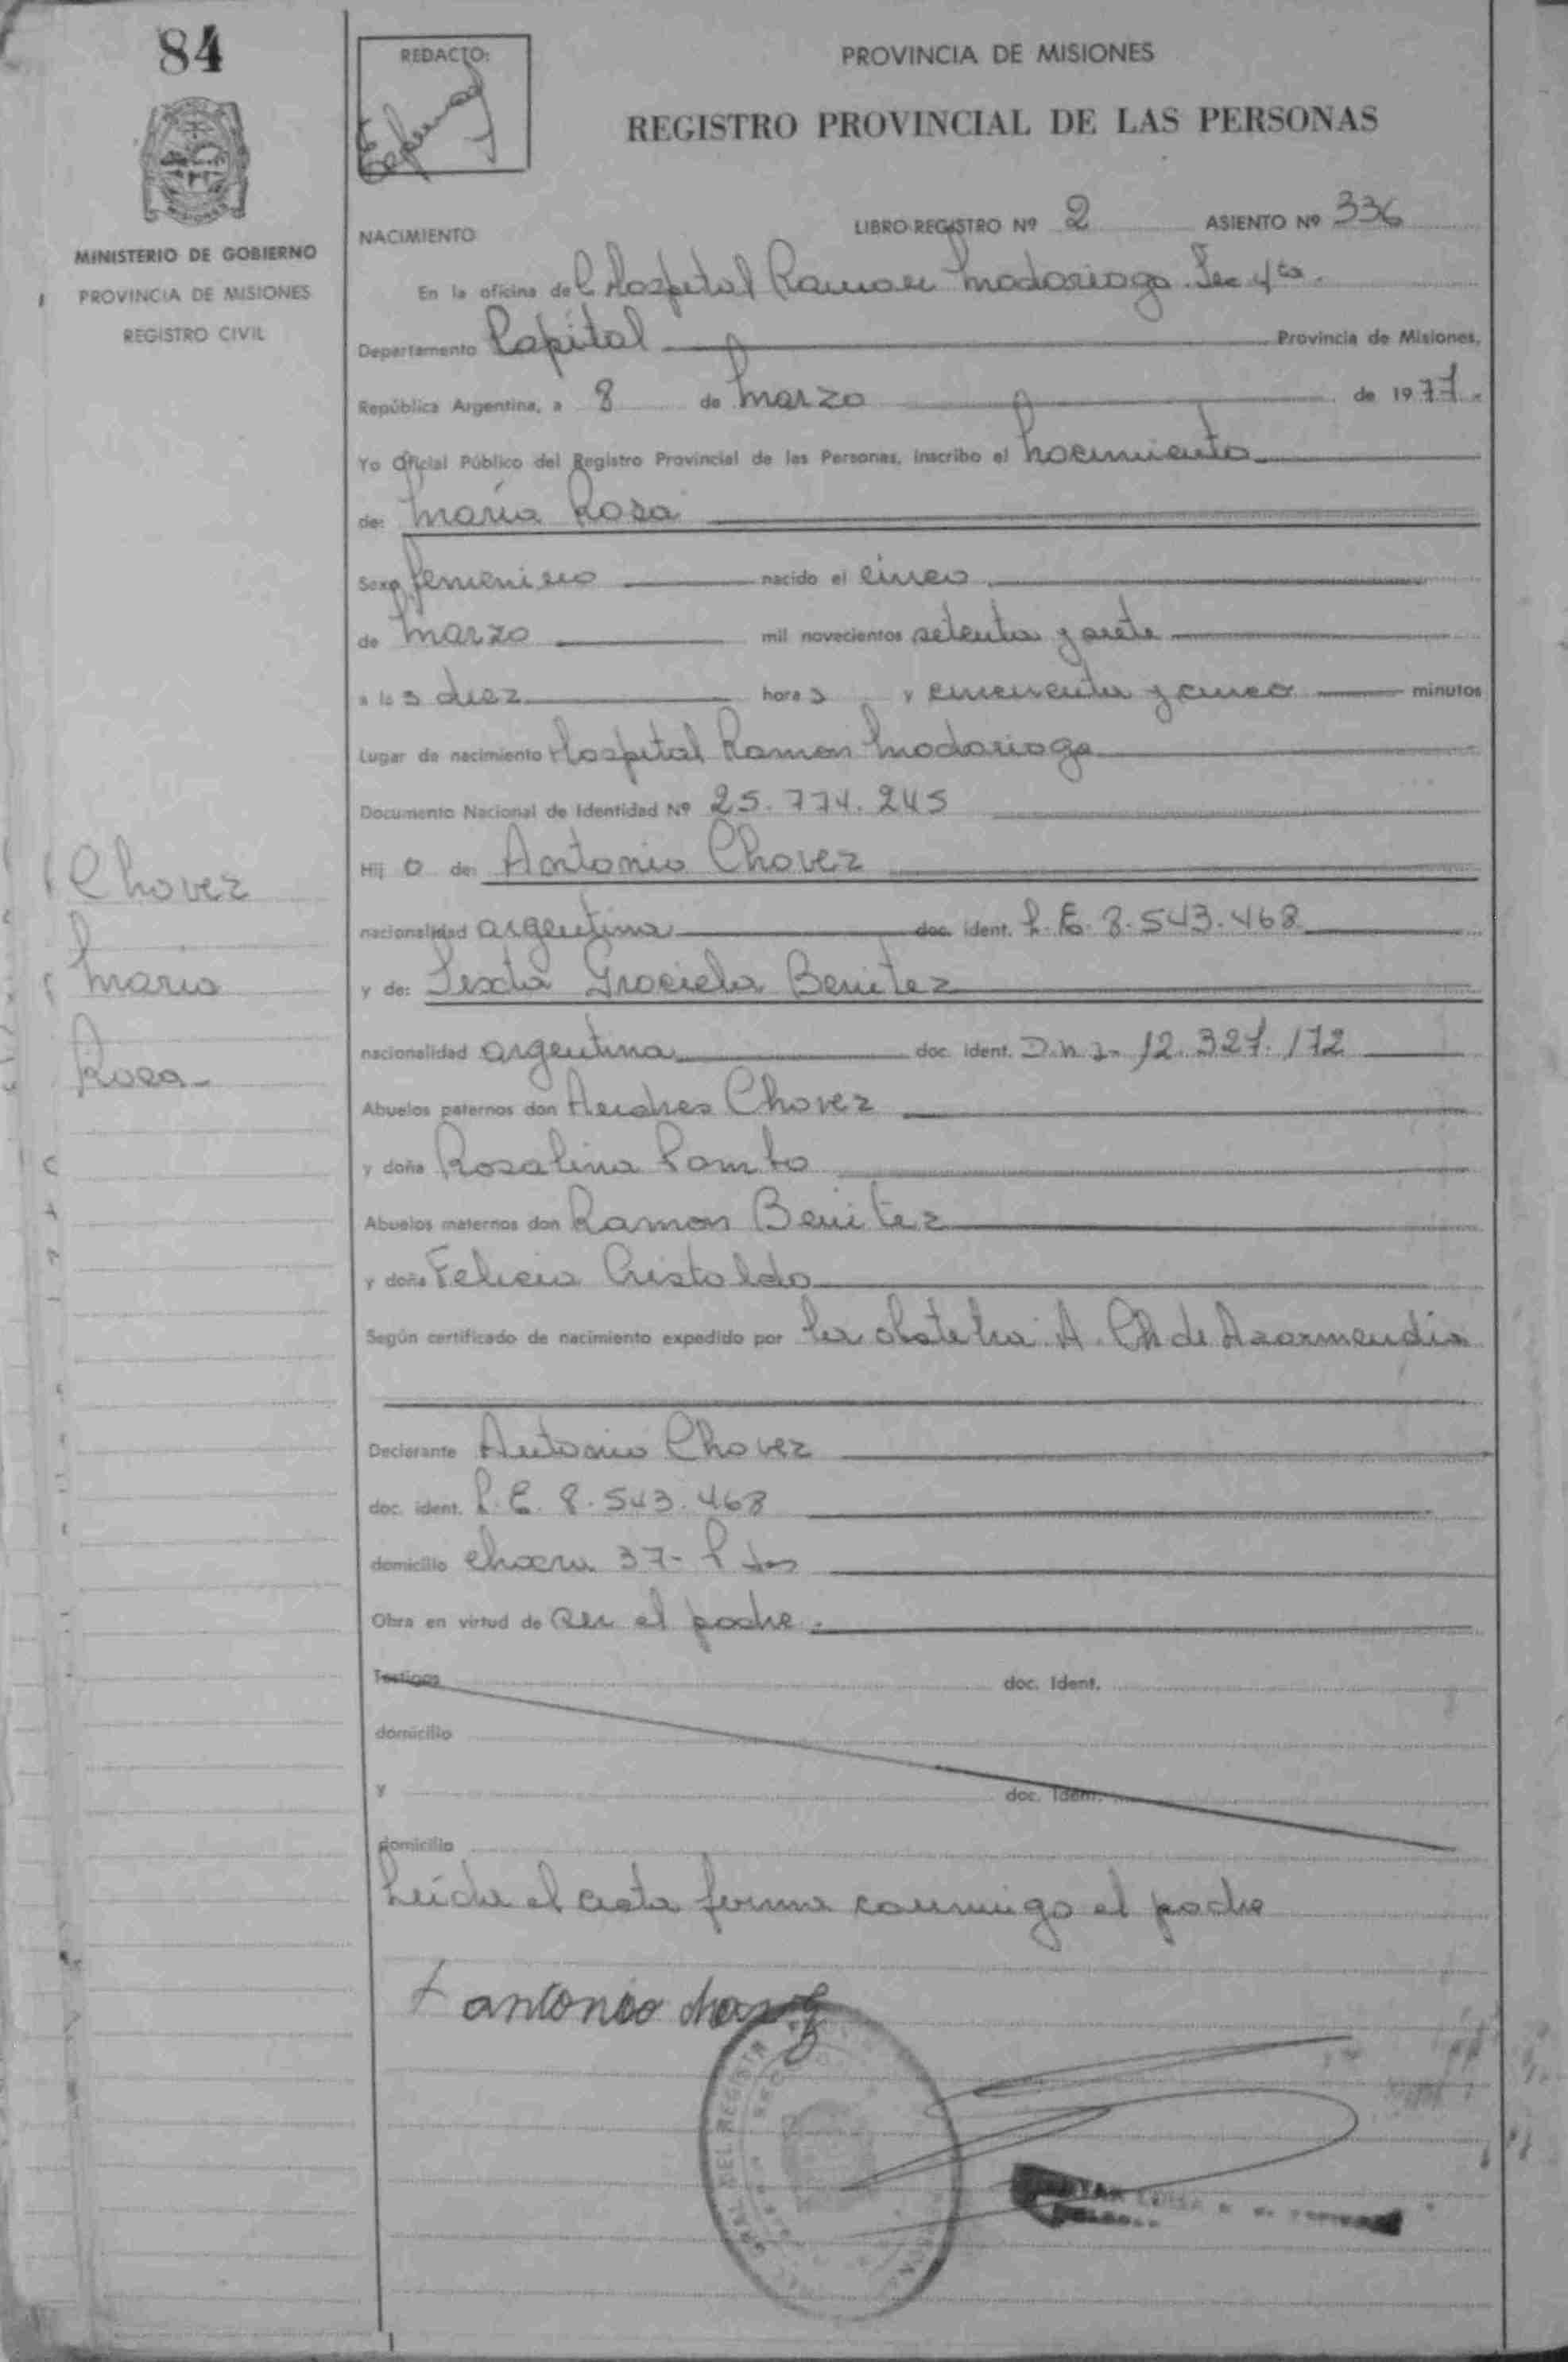 84
REDACTO:
PROVINCIA DE MISIONES
REGISTRO PROVINCIAL DE LAS PERSONAS
MINISTERIO DE GOBIERNO
PROVINCIA DE MISIONES
REGISTRO CIVIL
NACIMIENTO
LIBRO REGISTRO Nº 2 ASIENTO Nº 336
En la oficina del Hospital Ramon Madariaga Sec 4ta.
Departamento Capital Provincia de Misiones,
República Argentina, a 8 de Marzo de 1977.
Yo Oficial Público del Registro Provincial de las Personas, inscribo el nacimiento
de: María Rosa
Sexo femenino nacido el cinco
de marzo mil novecientos setenta y siete
a las diez horas y cincuenta y cinco minutos
Lugar de nacimiento Hospital Ramon Madariaga
Documento Nacional de Identidad Nº 25.774.245
Hij o de: Antonio Chavez
nacionalidad argentina doc. ident. L.E. 8.543.468
y de: Sexta Graciela Benitez
nacionalidad argentina doc. ident. D.N.I. 12.327.172
Abuelos paternos don Andres Chavez
y doña Rosalina
Abuelos maternos don Ramon Benitez
y doña Felicia Cristaldo
Según certificado de nacimiento expedido por la obstetra A. Ch de Azarmendia
Declarante Antonio Chavez
doc. ident. L.E. 8.543.468
domicilio chacra 37- Pdas
Obra en virtud de ser el padre.
Testigos doc. Ident.
domicilio
y doc. Ident.
domicilio
Leída el acta firma conmigo el padre
antonio chavez
Chavez
Maria
Rosa